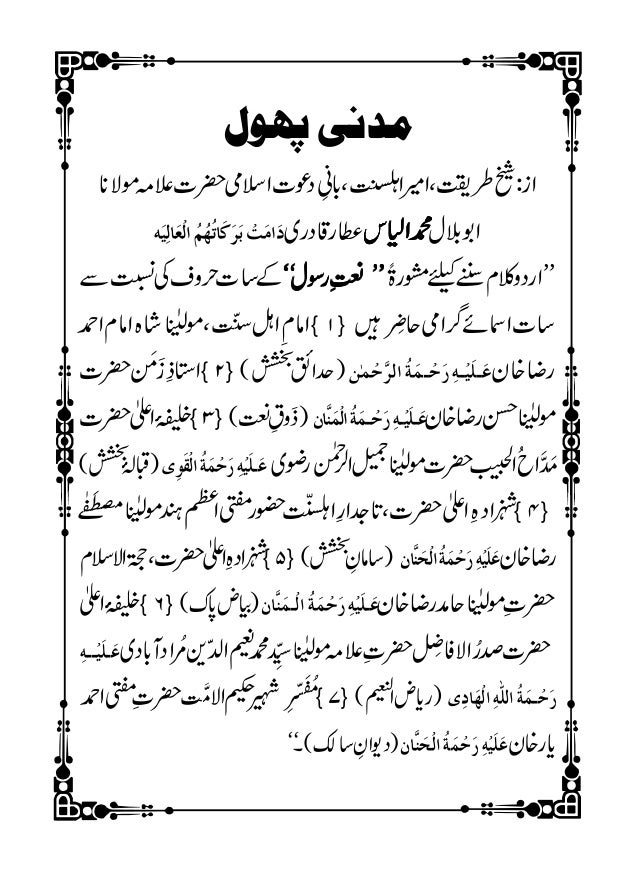 مدنی پھول
از: شیخ طریقت، امیر اہلسنت، بانیِ دعوت اسلامی حضرت علامہ مولانا
ابو بلال محمد الیاس عطار قادری دَامَتْ بَرَکَاتُهُمُ الْعَالِیَه
’’اردو کلام سننے کیلئے مشورۃً ’’ نعتِ رسول‘‘ کے سات حروف کی نسبت سے
سات اسمائے گرامی حاضِر ہیں {۱} امامِ اہلِ سنّت، مولٰینا شاہ امام احمد
رضا خان عَلَیْهِ رَحْمَةُ الرَّحْمٰن (حدائقِ بخشش) {۲} استاذِ زَمَن حضرت
مولٰینا حسن رضا خان عَلَیْهِ رَحْمَةُ الْمَنَّان (ذَوقِ نعت) {۳} خلیفۂ اعلیٰ حضرت
مَدَّاحُ الحبیب حضرت مولٰینا جمیل الرحمٰن رضوی عَلَیْهِ رَحْمَةُ الْقَوِی (قبالۂ بخشش)
{۴} شہزادہِ اعلیٰ حضرت، تاجدارِ اہلسنّت حضور مفتی اعظم ہند مولٰینا مصطَفٰے
رضا خان عَلَیْهِ رَحْمَةُ الْحَنَّان (سامانِ بخشش) {۵} شہزادہِ اعلیٰ حضرت، حجۃ الاسلام
حضرتِ مولٰینا حامد رضا خان عَلَیْهِ رَحْمَةُ الْمَنَّان (بیاض پاک) {۶} خلیفۂ اعلیٰ
حضرت صدرُ الافاضِل حضرتِ علامہ مولٰینا سیِّد محمد نعیم الدّین مُراد آبادی عَلَیْهِ
رَحْمَةُ اللهِ الْهَادِی (ریاض النعیم) {۷} مُفَسِّرِ شہیر حکیم الامَّت حضرتِ مفتی احمد
یار خان عَلَیْهِ رَحْمَةُ الْحَنَّان (دیوانِ سالک)۔‘‘